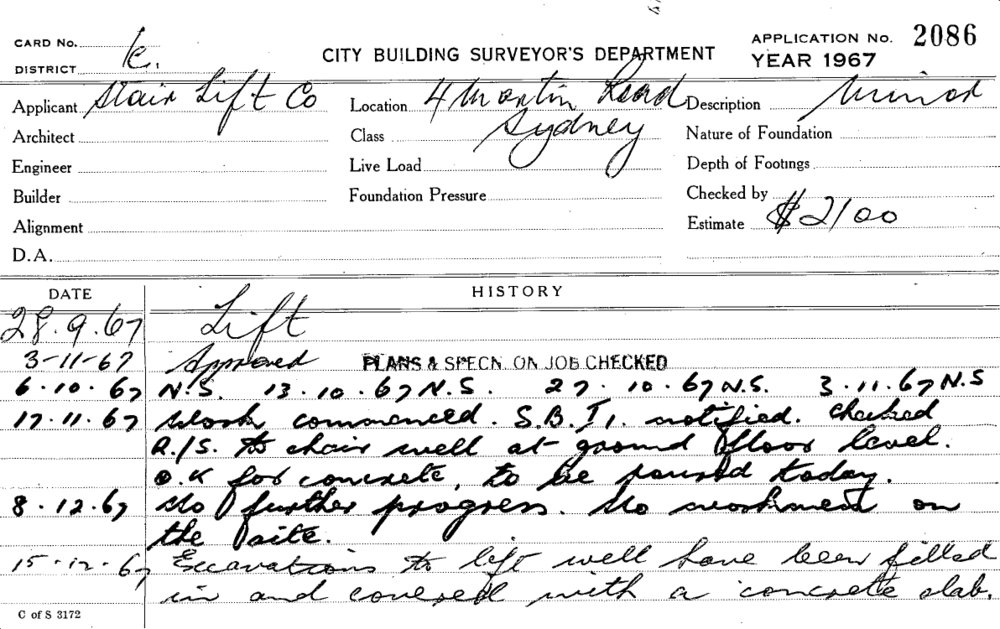 CARD No. Ic.
DISTRICT
CITY BUILDING SURVEYOR'S DEPARTMENT
APPLICATION No. 2086
YEAR 1967
Applicant Stair Lift Co
Location 4 Martin Road Sydney
Description Minor
Architect
Class
Nature of Foundation
Engineer
Live Load
Depth of Footings
Builder
Foundation Pressure
Checked by
Alignment
Estimate $2100
D.A.
DATE HISTORY
28.9.67 Lift
3-11-67 Approved PLANS & SPECN. ON JOB CHECKED
6.10.67 N.S. 13.10.67 N.S. 27.10.67 N.S. 3.11.67 N.S
17.11.67 Work commenced. S.B.I. notified. Checked
R/S. to chair well at ground floor level.
O.K for concrete, to be poured today.
8.12.67 No further progress. No workmen on
the site.
15.12.67 Excavations to lift well have been filled
in and covered with a concrete slab.
C of S 3172